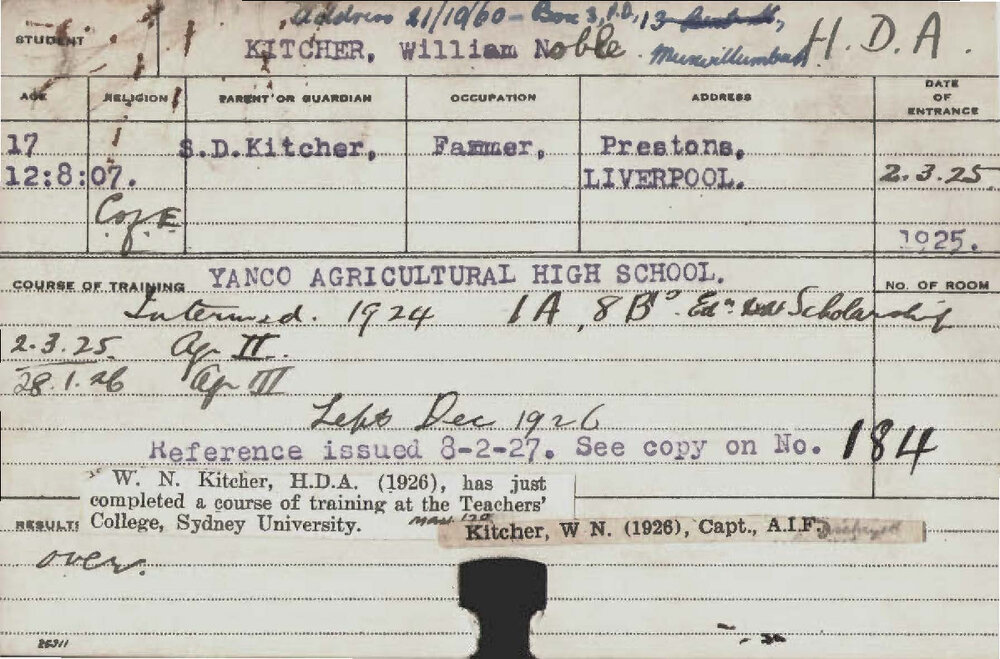 Address 21/10/60 - Box 3, P.O., 13
STUDENT KITCHER, William Noble Murwillumbah H.D.A.
AGE RELIGION PARENT OR GUARDIAN OCCUPATION ADDRESS DATE OF ENTRANCE
17 S.D.Kitcher, Farmer, Prestons,
12:8:07. LIVERPOOL. 2.3.25
C of E
1925.
COURSE OF TRAINING YANCO AGRICULTURAL HIGH SCHOOL. NO. OF ROOM
Intermed. 1924 1A, 8B's. Edn. Scholarship
2.3.25. Ag II.
28.1.26 Ag III
Left Dec 1926
Reference issued 8-2-27. See copy on No. 184
W. N. Kitcher, H.D.A. (1926), has just
completed a course of training at the Teachers'
RESULT: College, Sydney University.
Kitcher, W N. (1926), Capt., A.I.F.
over.